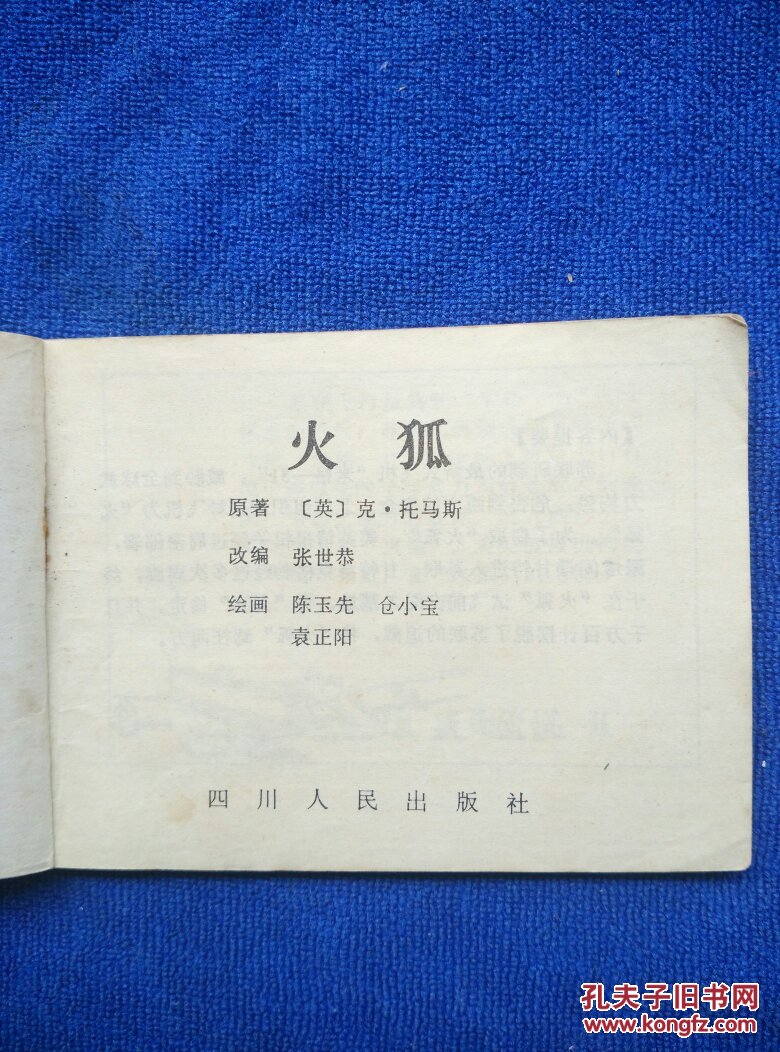 火狐
原著 〔英〕克·托马斯
改编 张世恭
绘画 陈玉先 仓小宝
袁正阳
四川人民出版社
孔夫子旧书网
www.kongfz.com